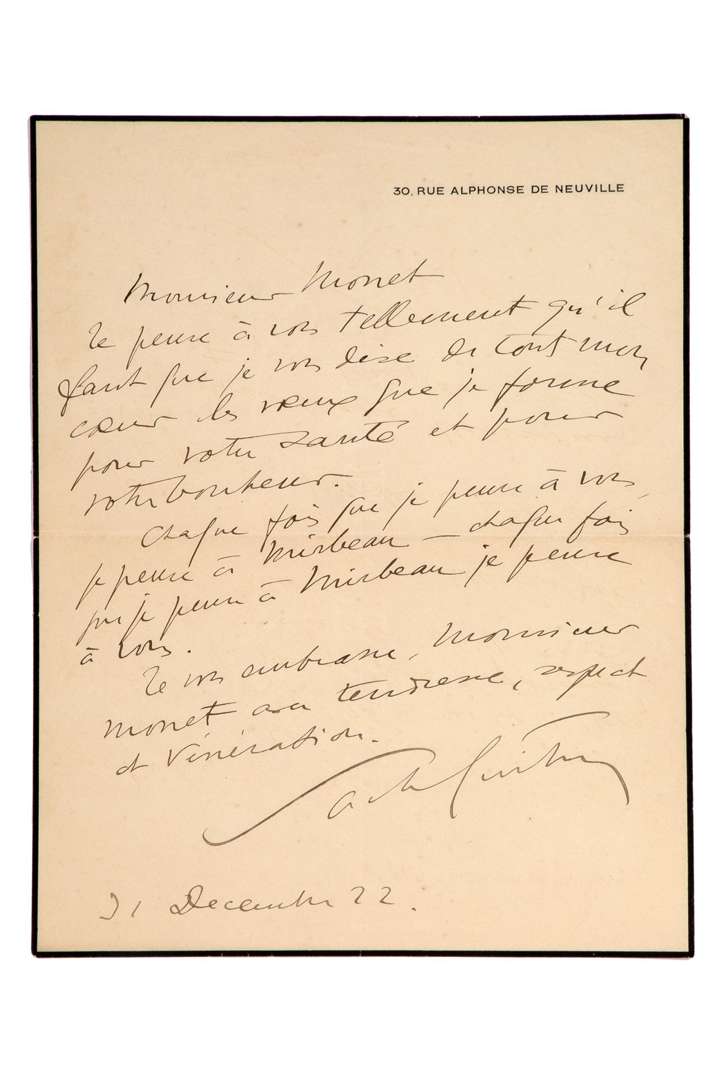 30, RUE ALPHONSE DE NEUVILLE
Monsieur Monet
Je pense à vous tellement qu'il
faut que je vous dise de tout mon
cœur les vœux que je forme
pour votre santé et pour
votre bonheur.
Chaque fois que je pense à vous,
je pense à Mirbeau — chaque fois
que je pense à Mirbeau je pense
à vous.
Je vous embrasse, Monsieur
Monet avec tendresse, respect
et vénération.
Sacha Guitry
31 Decembre 22.